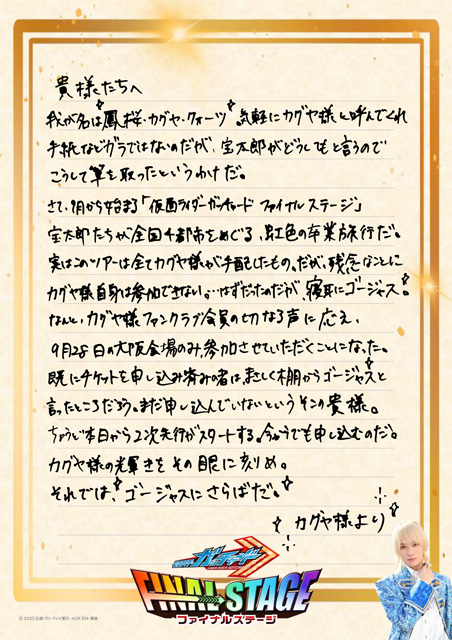 貴様たちへ
我が名は✧鳳桜・カグヤ・クォーツ✧。気軽にカグヤ様と呼んでくれ
手紙などガラではないのだが、宝太郎がどうしてもと言うので
こうして筆を取ったというわけだ。
さて、9月から始まる「仮面ライダーガッチャード ファイナルステージ」
宝太郎たちが全国千都市をめぐる、虹色の卒業旅行だ。
実はこのツアーは全てカグヤ様が手配したもの。だが、残念なことに
カグヤ様自身は参加できない。…はずだったのだが、✧寝耳にゴージャス✧。
なんと、カグヤ様ファンクラブ会員の切なる声に応え、
9月28日の大阪会場のみ、参加させていただくことになった。
既にチケットを申し込み済みの者は、まさしく棚からゴージャスと
言ったところだろう。まだ申し込んでいないというそこの貴様。
ちょうど本日から2次先行がスタートする。今からでも申し込むのだ。
カグヤ様の光輝きをその眼に刻め。
それでは、✧ゴージャスにさらばだ。✧
✧カグヤ様より✧
仮面ライダー ガッチャード
FINAL STAGE
ファイナルステージ